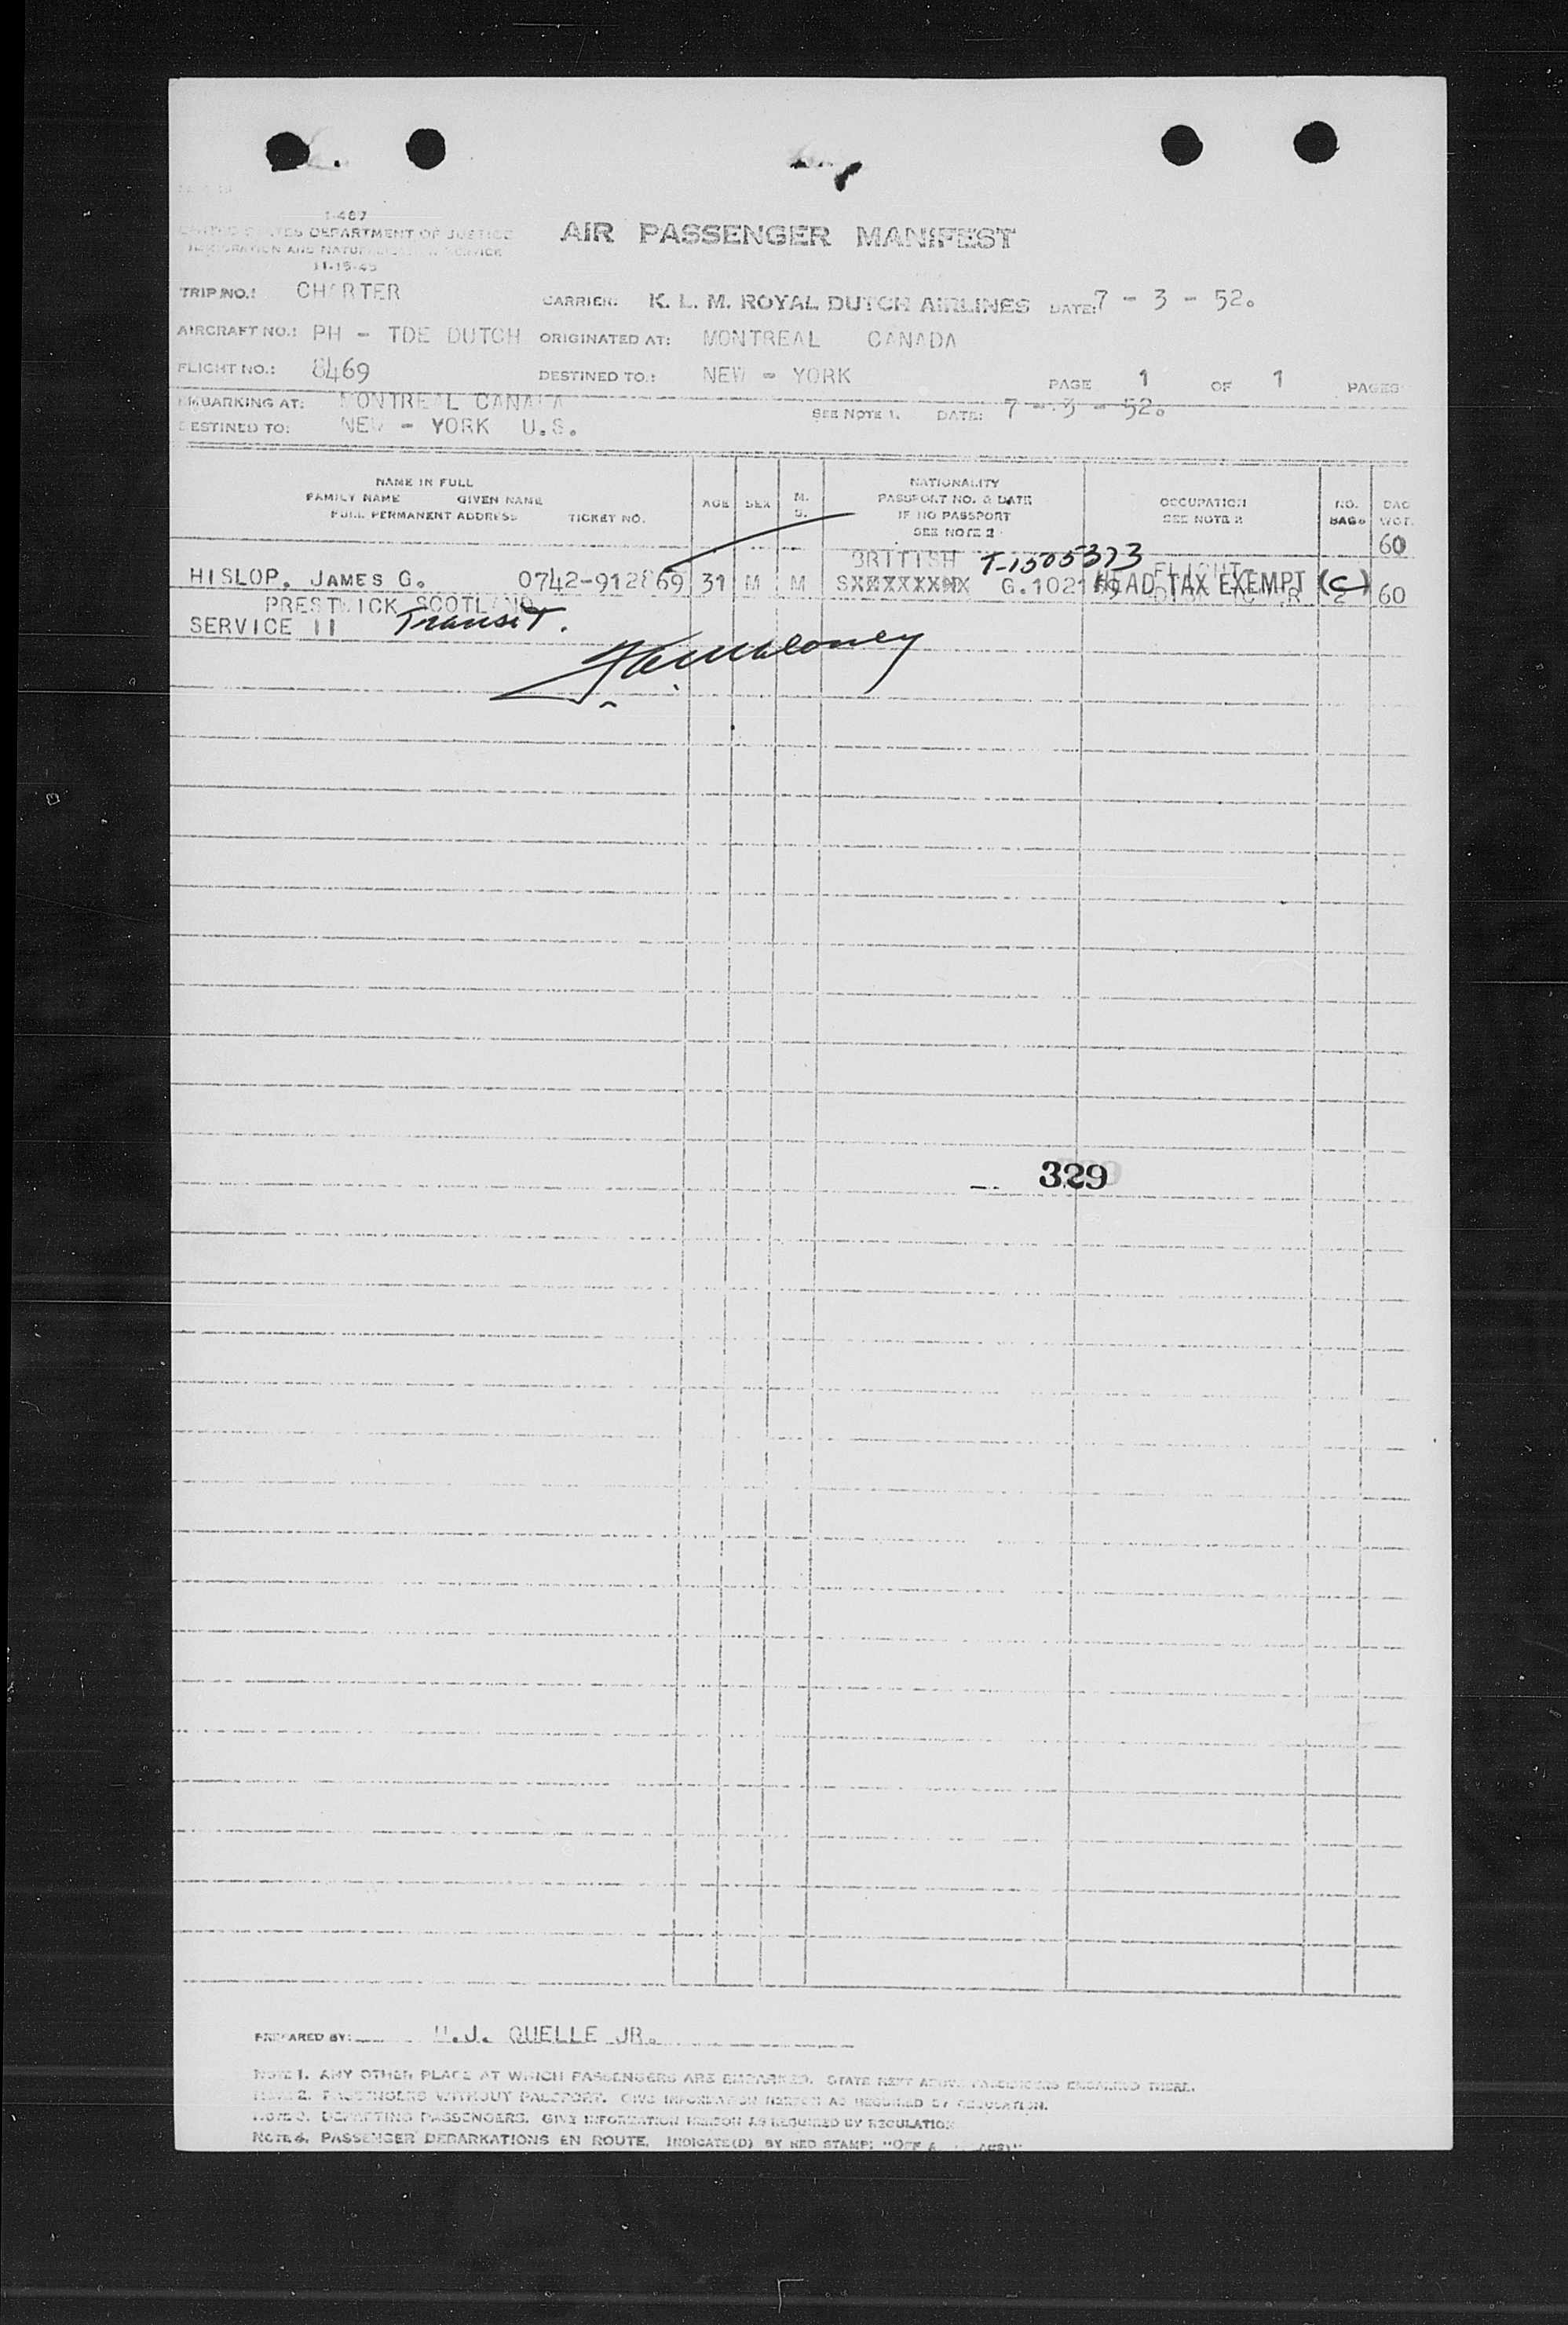 I-487
UNITED STATES DEPARTMENT OF JUSTICE
IMMIGRATION AND NATURALIZATION SERVICE
11-15-45
AIR PASSENGER MANIFEST
TRIP NO.: CHARTER CARRIER: K. L. M. ROYAL DUTCH AIRLINES DATE: 7 - 3 - 52.
AIRCRAFT NO.: PH - TDE DUTCH ORIGINATED AT: MONTREAL CANADA
FLIGHT NO.: 8469 DESTINED TO: NEW - YORK PAGE 1 OF 1 PAGES
EMBARKING AT: MONTREAL CANADA SEE NOTE 1. DATE: 7 - 3 - 52.
DESTINED TO: NEW - YORK U.S.
NAME IN FULL
FAMILY NAME GIVEN NAME
FULL PERMANENT ADDRESS TICKET NO.
AGE SEX M. S.
NATIONALITY
PASSPORT NO. & DATE
IF NO PASSPORT
SEE NOTE 2
OCCUPATION
SEE NOTE 2
NO. BAGS
BAG WGT.
60
BRITISH T-1505373 FLIGHT
HISLOP, JAMES G. 0742-912869 31 M M G.102159 HEAD TAX EXEMPT (C) 60
PRESTWICK SCOTLAND
SERVICE II Transit.
329
PREPARED BY: QUELLE JR.
NOTE 1. ANY OTHER PLACE AT WHICH PASSENGERS ARE EMBARKED. STATE NEXT ABOVE PASSENGERS EMBARKED THERE.
NOTE 2. PASSENGERS WITHOUT PASSPORT. GIVE INFORMATION HEREON AS REQUIRED BY REGULATION.
NOTE 3. DEPARTING PASSENGERS. GIVE INFORMATION HEREON AS REQUIRED BY REGULATION
NOTE 4. PASSENGER DEBARKATIONS EN ROUTE. INDICATE(D) BY RED STAMP: "OFF